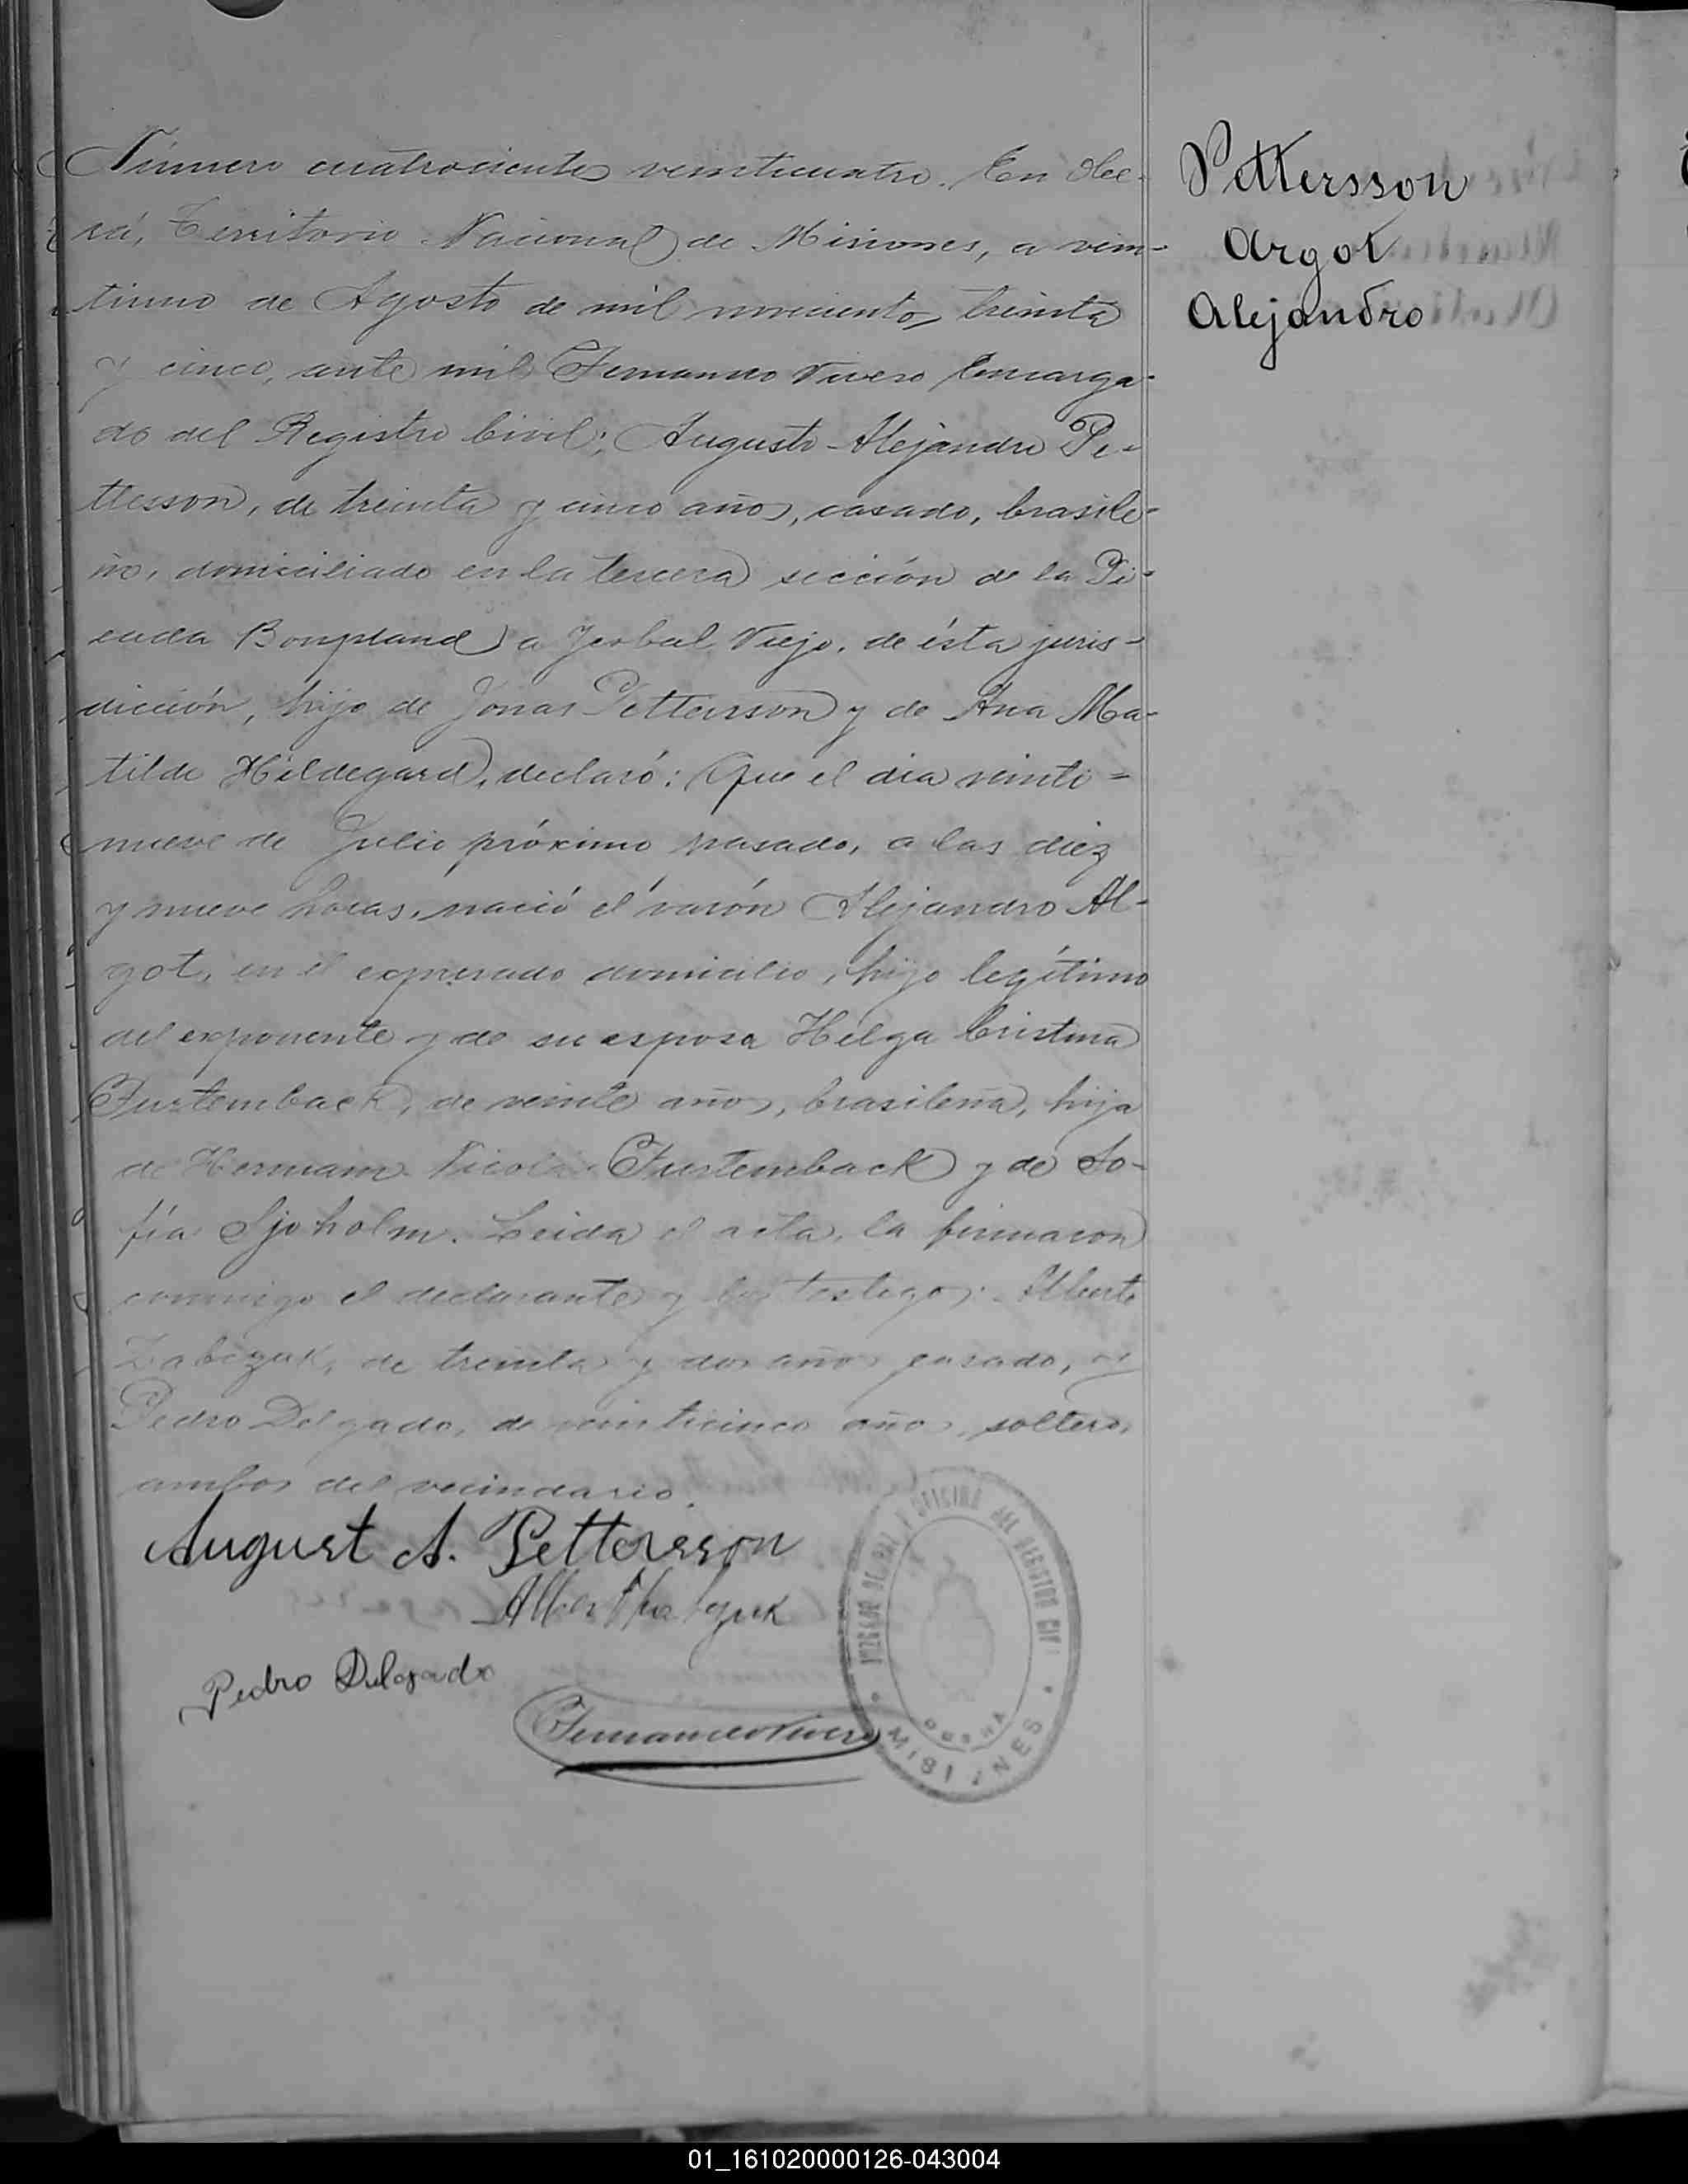 Número cuatrocientos veinticuatro. En Obe-
rá, Territorio Nacional de Misiones, a vein-
tiuno de Agosto de mil novecientos treinta
y cinco, ante mi Fernando Vivero Encarga-
do del Registro Civil; Augusto Alejandro Pe-
ttesson, de treinta y cinco años, casado, brasile-
ño, domiciliado en la tercera sección de la Pi-
cada Bonpland a Yerbal Viejo, de ésta juris-
dicción, hijo de Jonas Pettersson y de Ana Ma-
tilde Hildegard, declaró: Que el dia veinti-
nueve de Julio próximo pasado, a las diez
y nueve horas, nació el varón Alejandro Al-
got, en el expresado domicilio, hijo legítimo
del exponente y de su esposa Helga Cristina
Furtemback, de veinte años, brasileña, hija
de Hermam Furtemback y de So-
fía Sjoholm. Leida el acta, la firmaron
conmigo el declarante y los testigos: Alberto
de treinta y dos años casado, y
Pedro Delgado, de veinticinco años, soltero,
ambos del vecindario.
August A. Pettersson
Pedro Delgado
Fernando Vivero
JUZGADO DE PAZ Y OFICINA DEL REGISTRO CIVIL
MISIONES
Pettersson
Argot
Alejandro
01_161020000126-043004